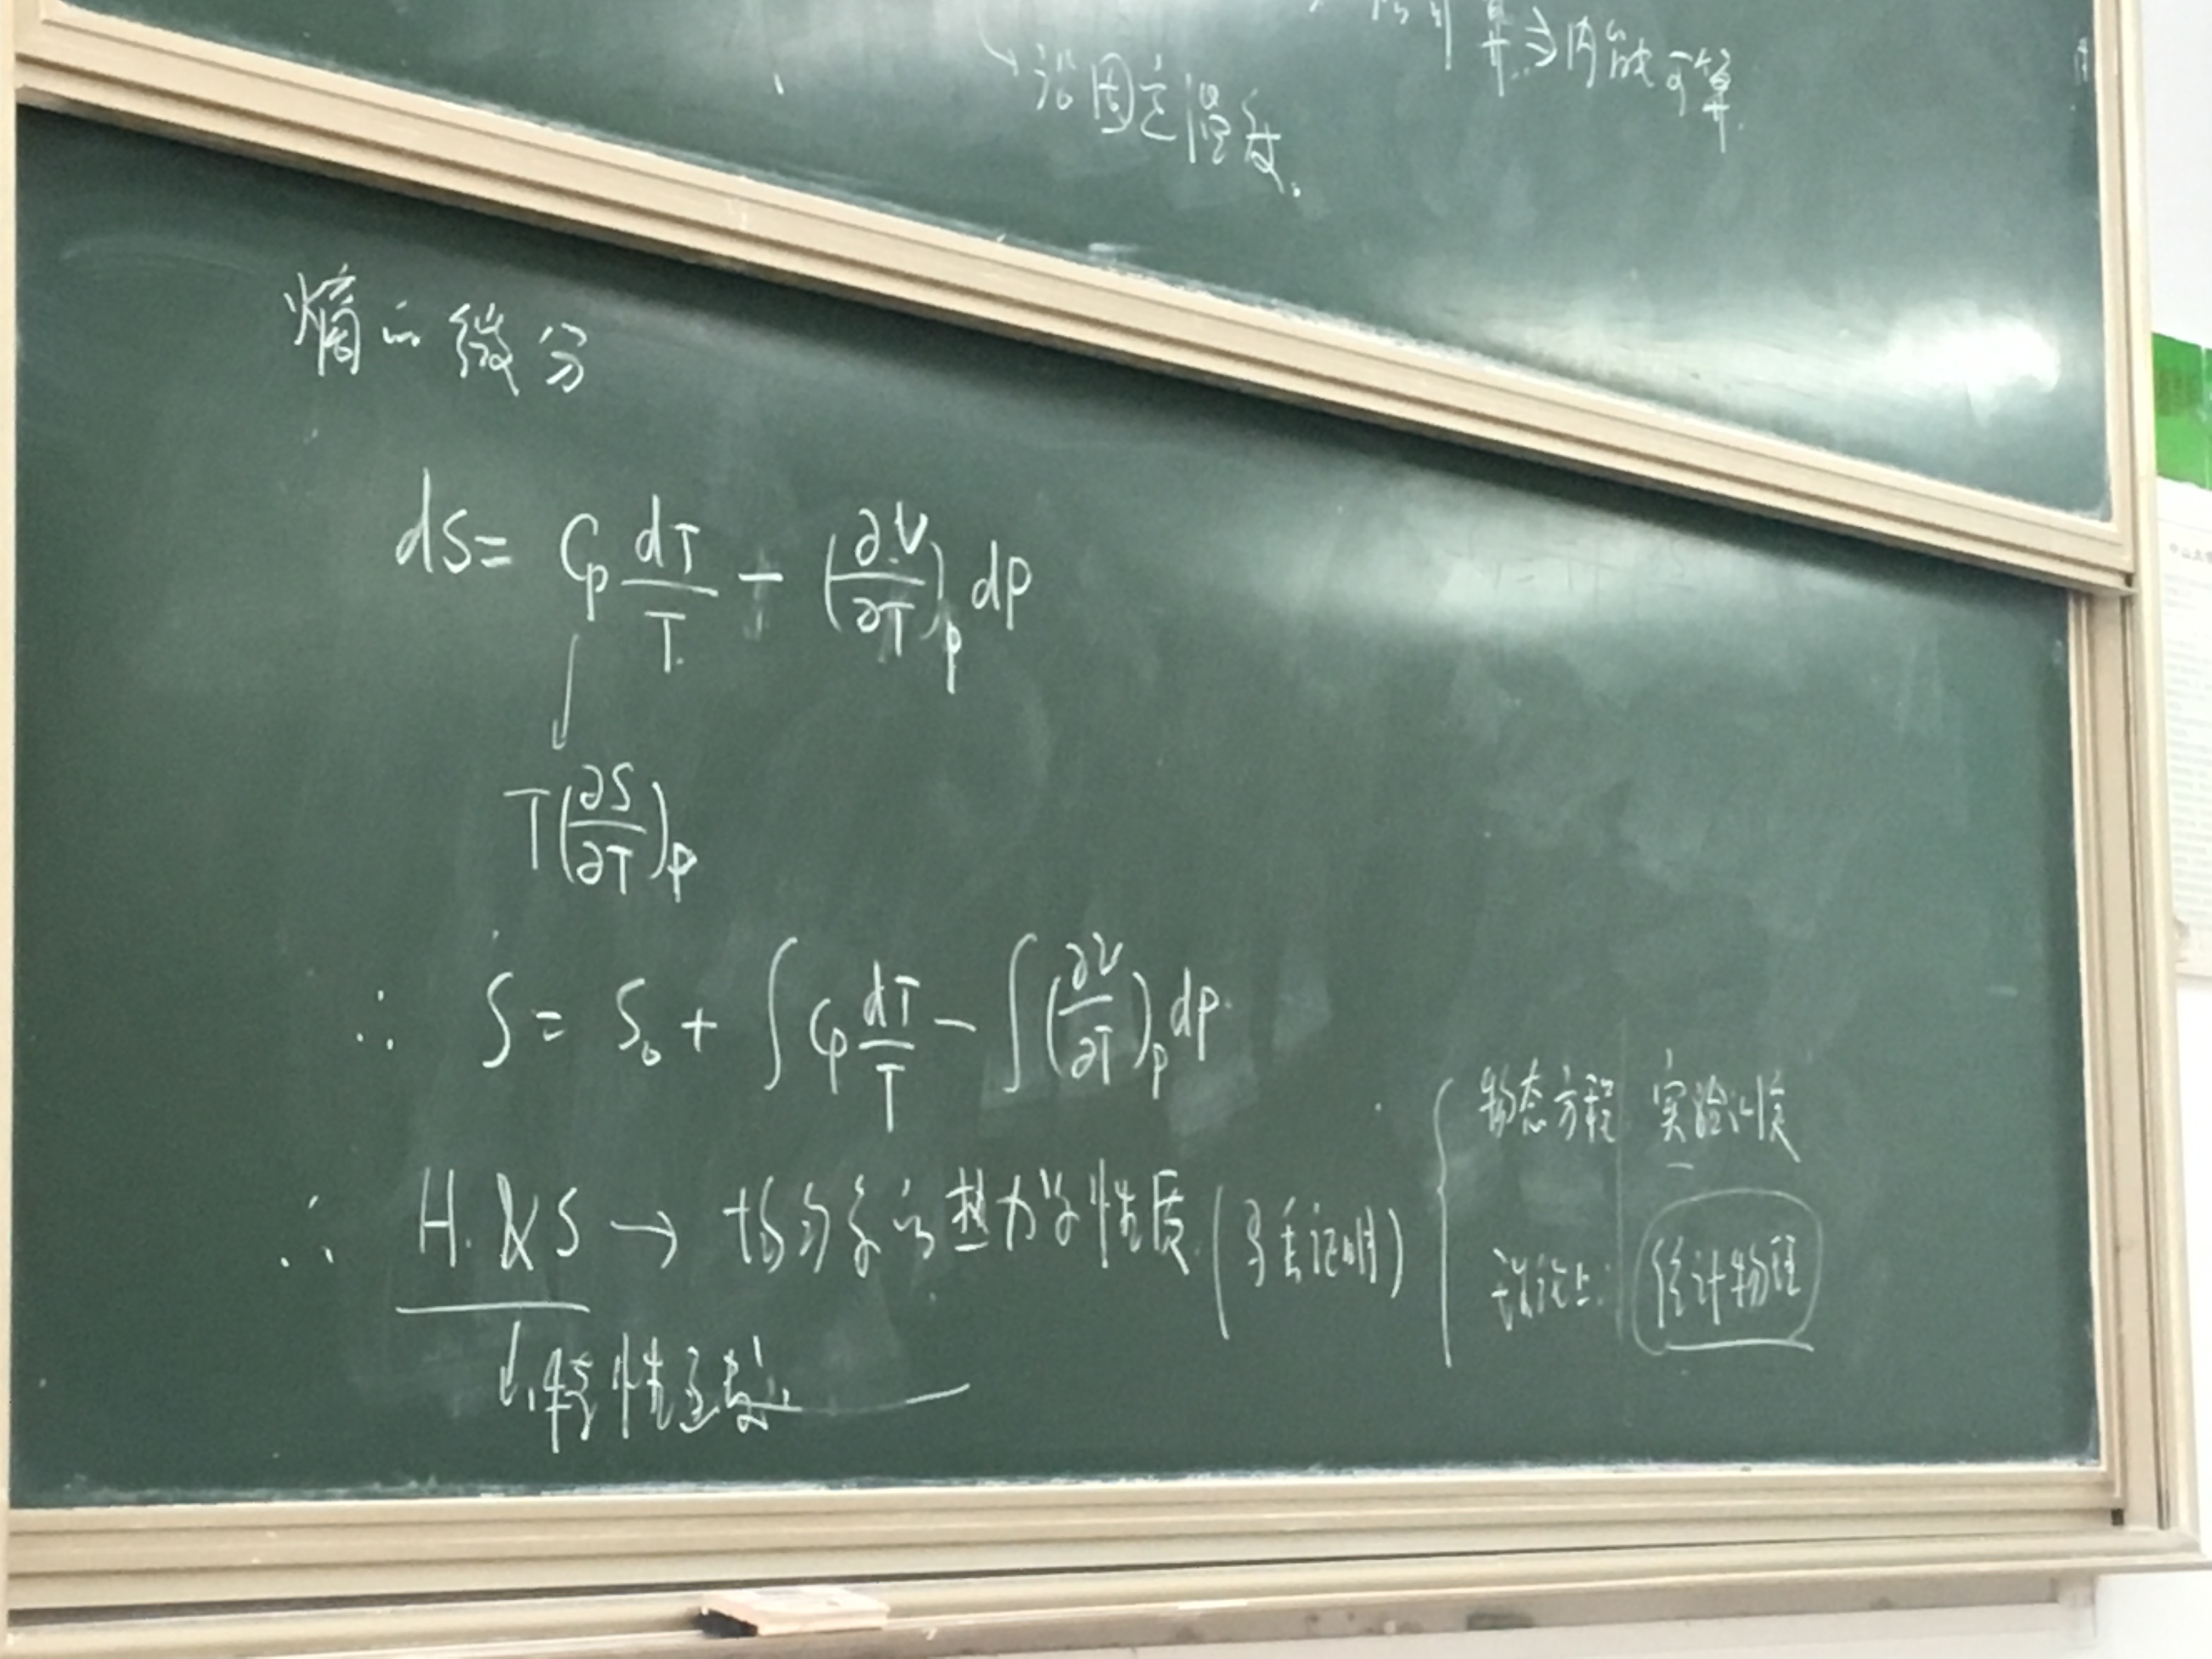 沿固定温度.
算⇒内能可算.
熵的微分
dS = Cp dT/T - (∂V/∂T)p dp
↓
T(∂S/∂T)p
∴ S = S₀ + ∫ Cp dT/T - ∫ (∂V/∂T)p dp.
∴ H. & S → 均匀系的热力学性质. (马上证明)
↓ 特性函数.
物态方程 实验
理论上: 统计物理